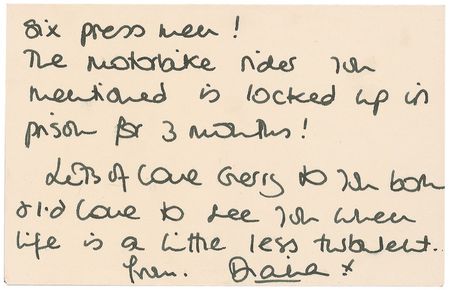 six press men!
The motorbike rider you
mentioned is locked up in
prison for 3 months!
Lots of love Gerry to you both
& I'd love to see you when
life is a little less turbulent.
from. Diana x